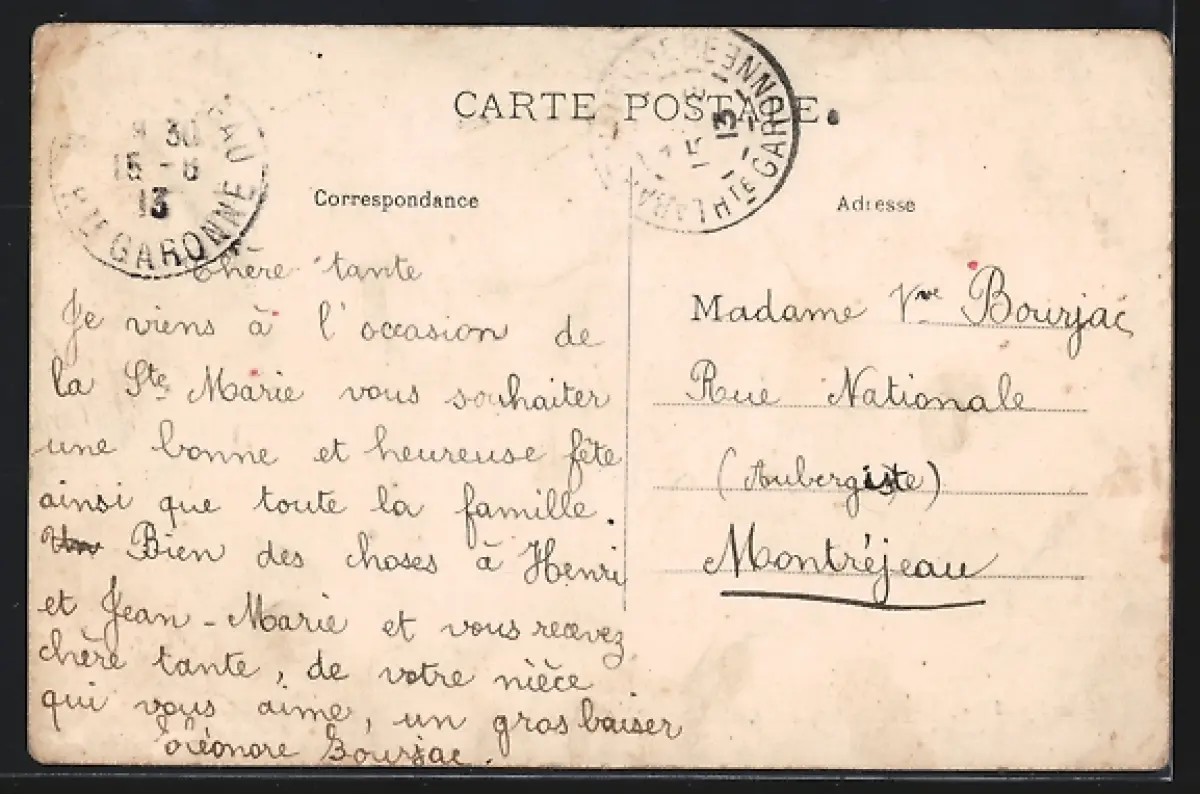 CARTE POSTALE.
Correspondance
Adresse
30
15 - 8
13
EAU
Hte GARONNE
13
Hte GARONNE
Chère tante
Je viens à l'occasion de
la Ste Marie vous souhaiter
une bonne et heureuse fête
ainsi que toute la famille.
Bien des choses à Henri
et Jean-Marie et vous recevez
chère tante, de votre nièce
qui vous aime, un gros baiser
Léonore Bourjac.
Madame Vve Bourjac
Rue Nationale
(Aubergiste)
Montréjeau